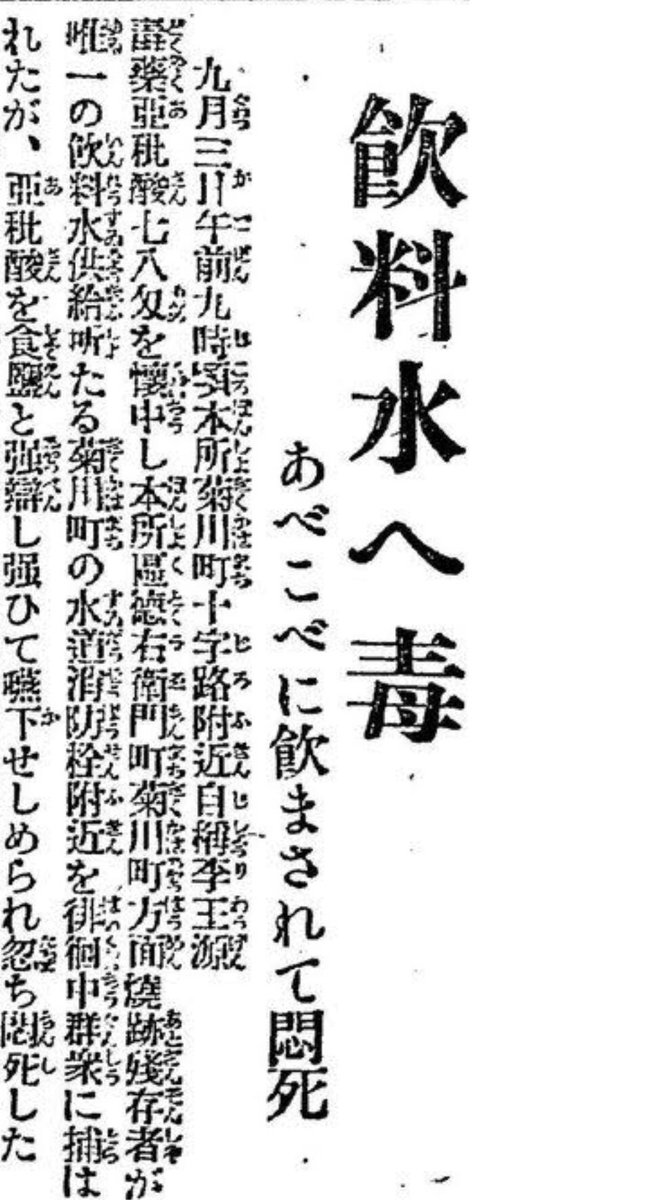 飲料水へ毒
あべこべに飲まされて悶死
九月三日午前九時頃本所菊川町十字路附近自稱李王源
毒藥亞砒酸七八匁を懷中し本所區德右衛門町菊川町方面燒跡殘存者が
唯一の飲料水供給所たる菊川町の水道消防栓附近を徘徊中群衆に捕は
れたが、亞砒酸を食鹽と强辯し强ひて嚥下せしめられ忽ち悶死した